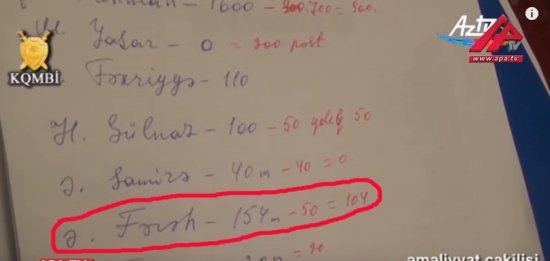 1600 - 300.700 = 900.
H. Yaşar - 0 = 200 post
Fəxriyyə - 110
H. Gülnaz - 100 - 50 qalıq 50
Ə. Samirə - 40m - 40 = 0.
Ə. Fərəh - 154m - 50 = 104
= 90
KQMBİ
AzTV
APA TV
www.apa.tv
əməliyyat çəkilişi